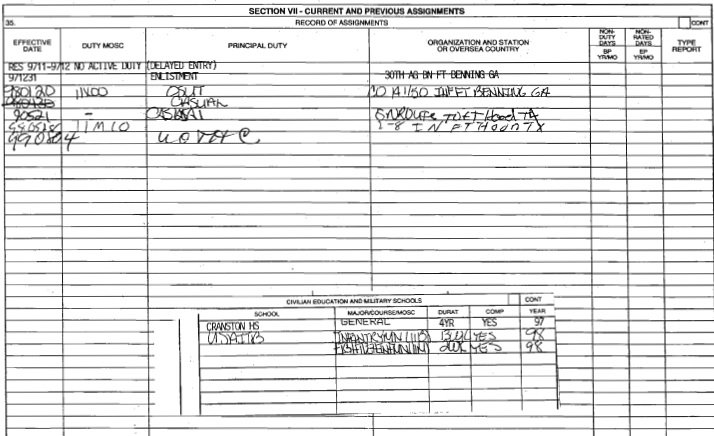 SECTION VII - CURRENT AND PREVIOUS ASSIGNMENTS
35. RECORD OF ASSIGNMENTS CONT
EFFECTIVE DATE DUTY MOSC PRINCIPAL DUTY ORGANIZATION AND STATION OR OVERSEA COUNTRY NON-DUTY DAYS BP YR/MO NON-RATED DAYS EP YR/MO TYPE REPORT
RES 9711-9712 NO ACTIVE DUTY (DELAYED ENTRY)
971231 ENLISTMENT 30TH AG BN FT BENNING GA
980120 11X00 OSUT CO A 1/50 IN FT BENNING GA
CASUAL
- CASUAL ENROUTE TO FT Hood TX
11M10 1-8 IN FT HOOD TX
990804
CIVILIAN EDUCATION AND MILITARY SCHOOLS CONT
SCHOOL MAJOR/COURSE/MOSC DURAT COMP YEAR
CRANSTON HS GENERAL 4YR YES 97
USAITB INFANTRYMN (11B) YES 98
2WK YES 98